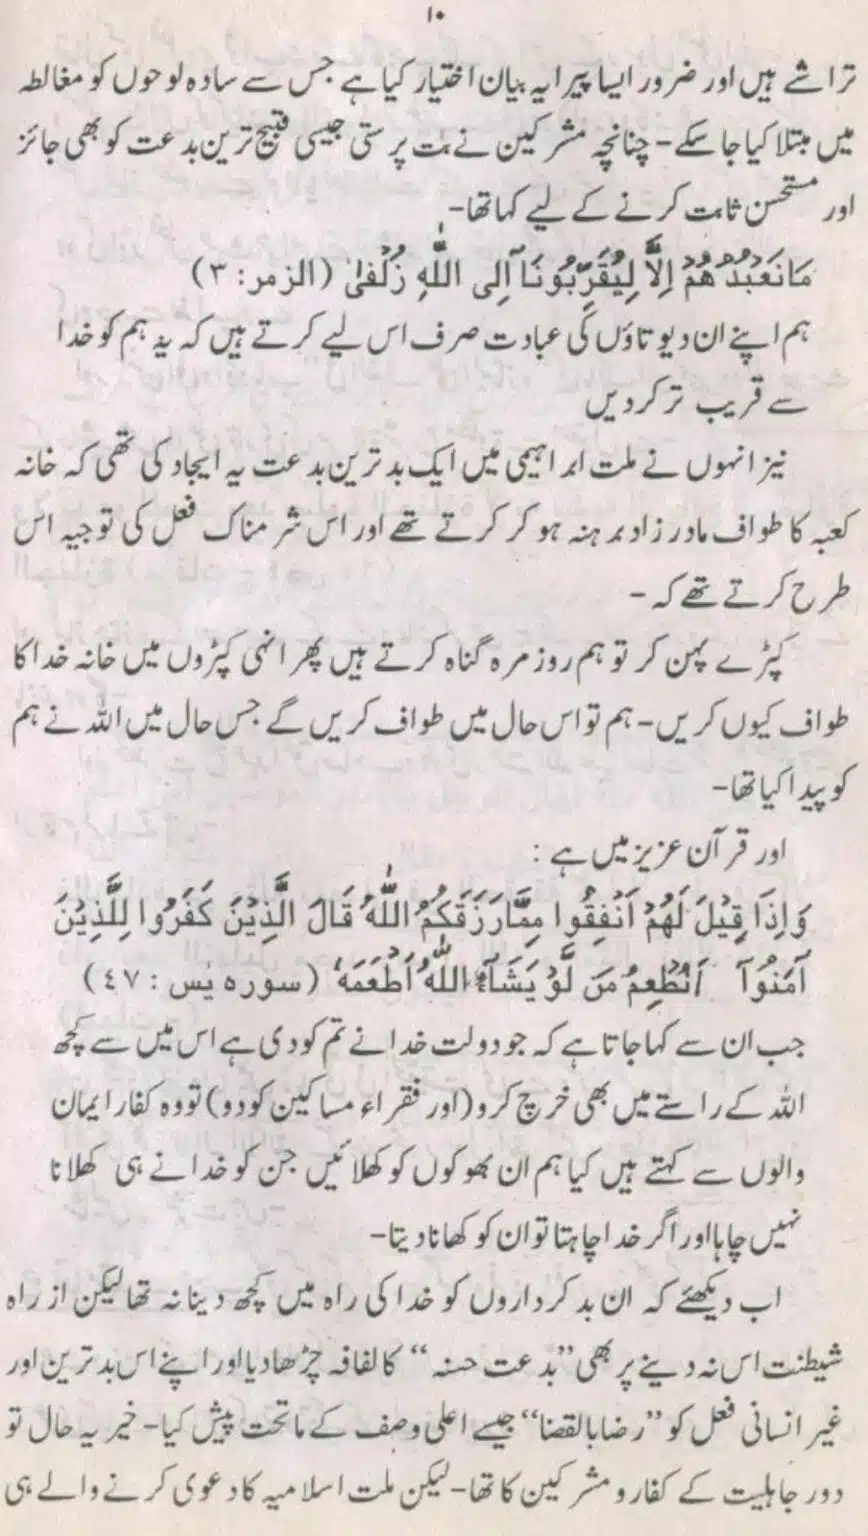 ۱۰
تراشے ہیں اور ضرور ایسا پیرایہ بیان اختیار کیا ہے جس سے سادہ لوحوں کو مغالطہ
میں مبتلا کیا جا سکے۔ چنانچہ مشرکین نے بت پرستی جیسی قبیح ترین بدعت کو بھی جائز
اور مستحسن ثابت کرنے کے لیے کہا تھا۔
مَانَعْبُدُهُمْ اِلَّا لِيُقَرِّبُونَآ اِلى اللّٰهِ زُلْفىٰ (الزمر: ۳)
ہم اپنے ان دیوتاؤں کی عبادت صرف اس لیے کرتے ہیں کہ یہ ہم کو خدا
سے قریب تر کر دیں
نیز انہوں نے ملت ابراہیمی میں ایک بدترین بدعت یہ ایجاد کی تھی کہ خانہ
کعبہ کا طواف مادر زاد برہنہ ہو کر کرتے تھے اور اس شرمناک فعل کی توجیہ اس
طرح کرتے تھے کہ۔
کپڑے پہن کر تو ہم روز مرہ گناہ کرتے ہیں پھر انہی کپڑوں میں خانہ خدا کا
طواف کیوں کریں۔ ہم تو اس حال میں طواف کریں گے جس حال میں اللہ نے ہم
کو پیدا کیا تھا۔
اور قرآن عزیز میں ہے :
وَاِذَا قِيْلَ لَهُمْ اَنْفِقُوا مِمَّارَزَقَكُمُ اللّٰهُ قَالَ الَّذِيْنَ كَفَرُوا لِلَّذِيْنَ
آمَنُوْآ اَنُطْعِمُ مَن لَّوْ يَشَآءُ اللّٰهُ اَطْعَمَهٗ (سورہ یٰس : ٤٧)
جب ان سے کہا جاتا ہے کہ جو دولت خدا نے تم کو دی ہے اس میں سے کچھ
اللہ کے راستے میں بھی خرچ کرو (اور فقراء مساکین کو دو) تو وہ کفار ایمان
والوں سے کہتے ہیں کیا ہم ان بھوکوں کو کھلائیں جن کو خدا نے ہی کھلانا
نہیں چاہا اور اگر خدا چاہتا تو ان کو کھانا دیتا۔
اب دیکھئے کہ ان بد کرداروں کو خدا کی راہ میں کچھ دینا نہ تھا لیکن از راہ
شیطنت اس نہ دینے پر بھی ”بدعت حسنہ“ کا لفافہ چڑھا دیا اور اپنے اس بدترین اور
غیر انسانی فعل کو ”رضا بالقضا“ جیسے اعلی وصف کے ماتحت پیش کیا۔ خیر یہ حال تو
دور جاہلیت کے کفار و مشرکین کا تھا۔ لیکن ملت اسلامیہ کا دعوی کرنے والے ہی